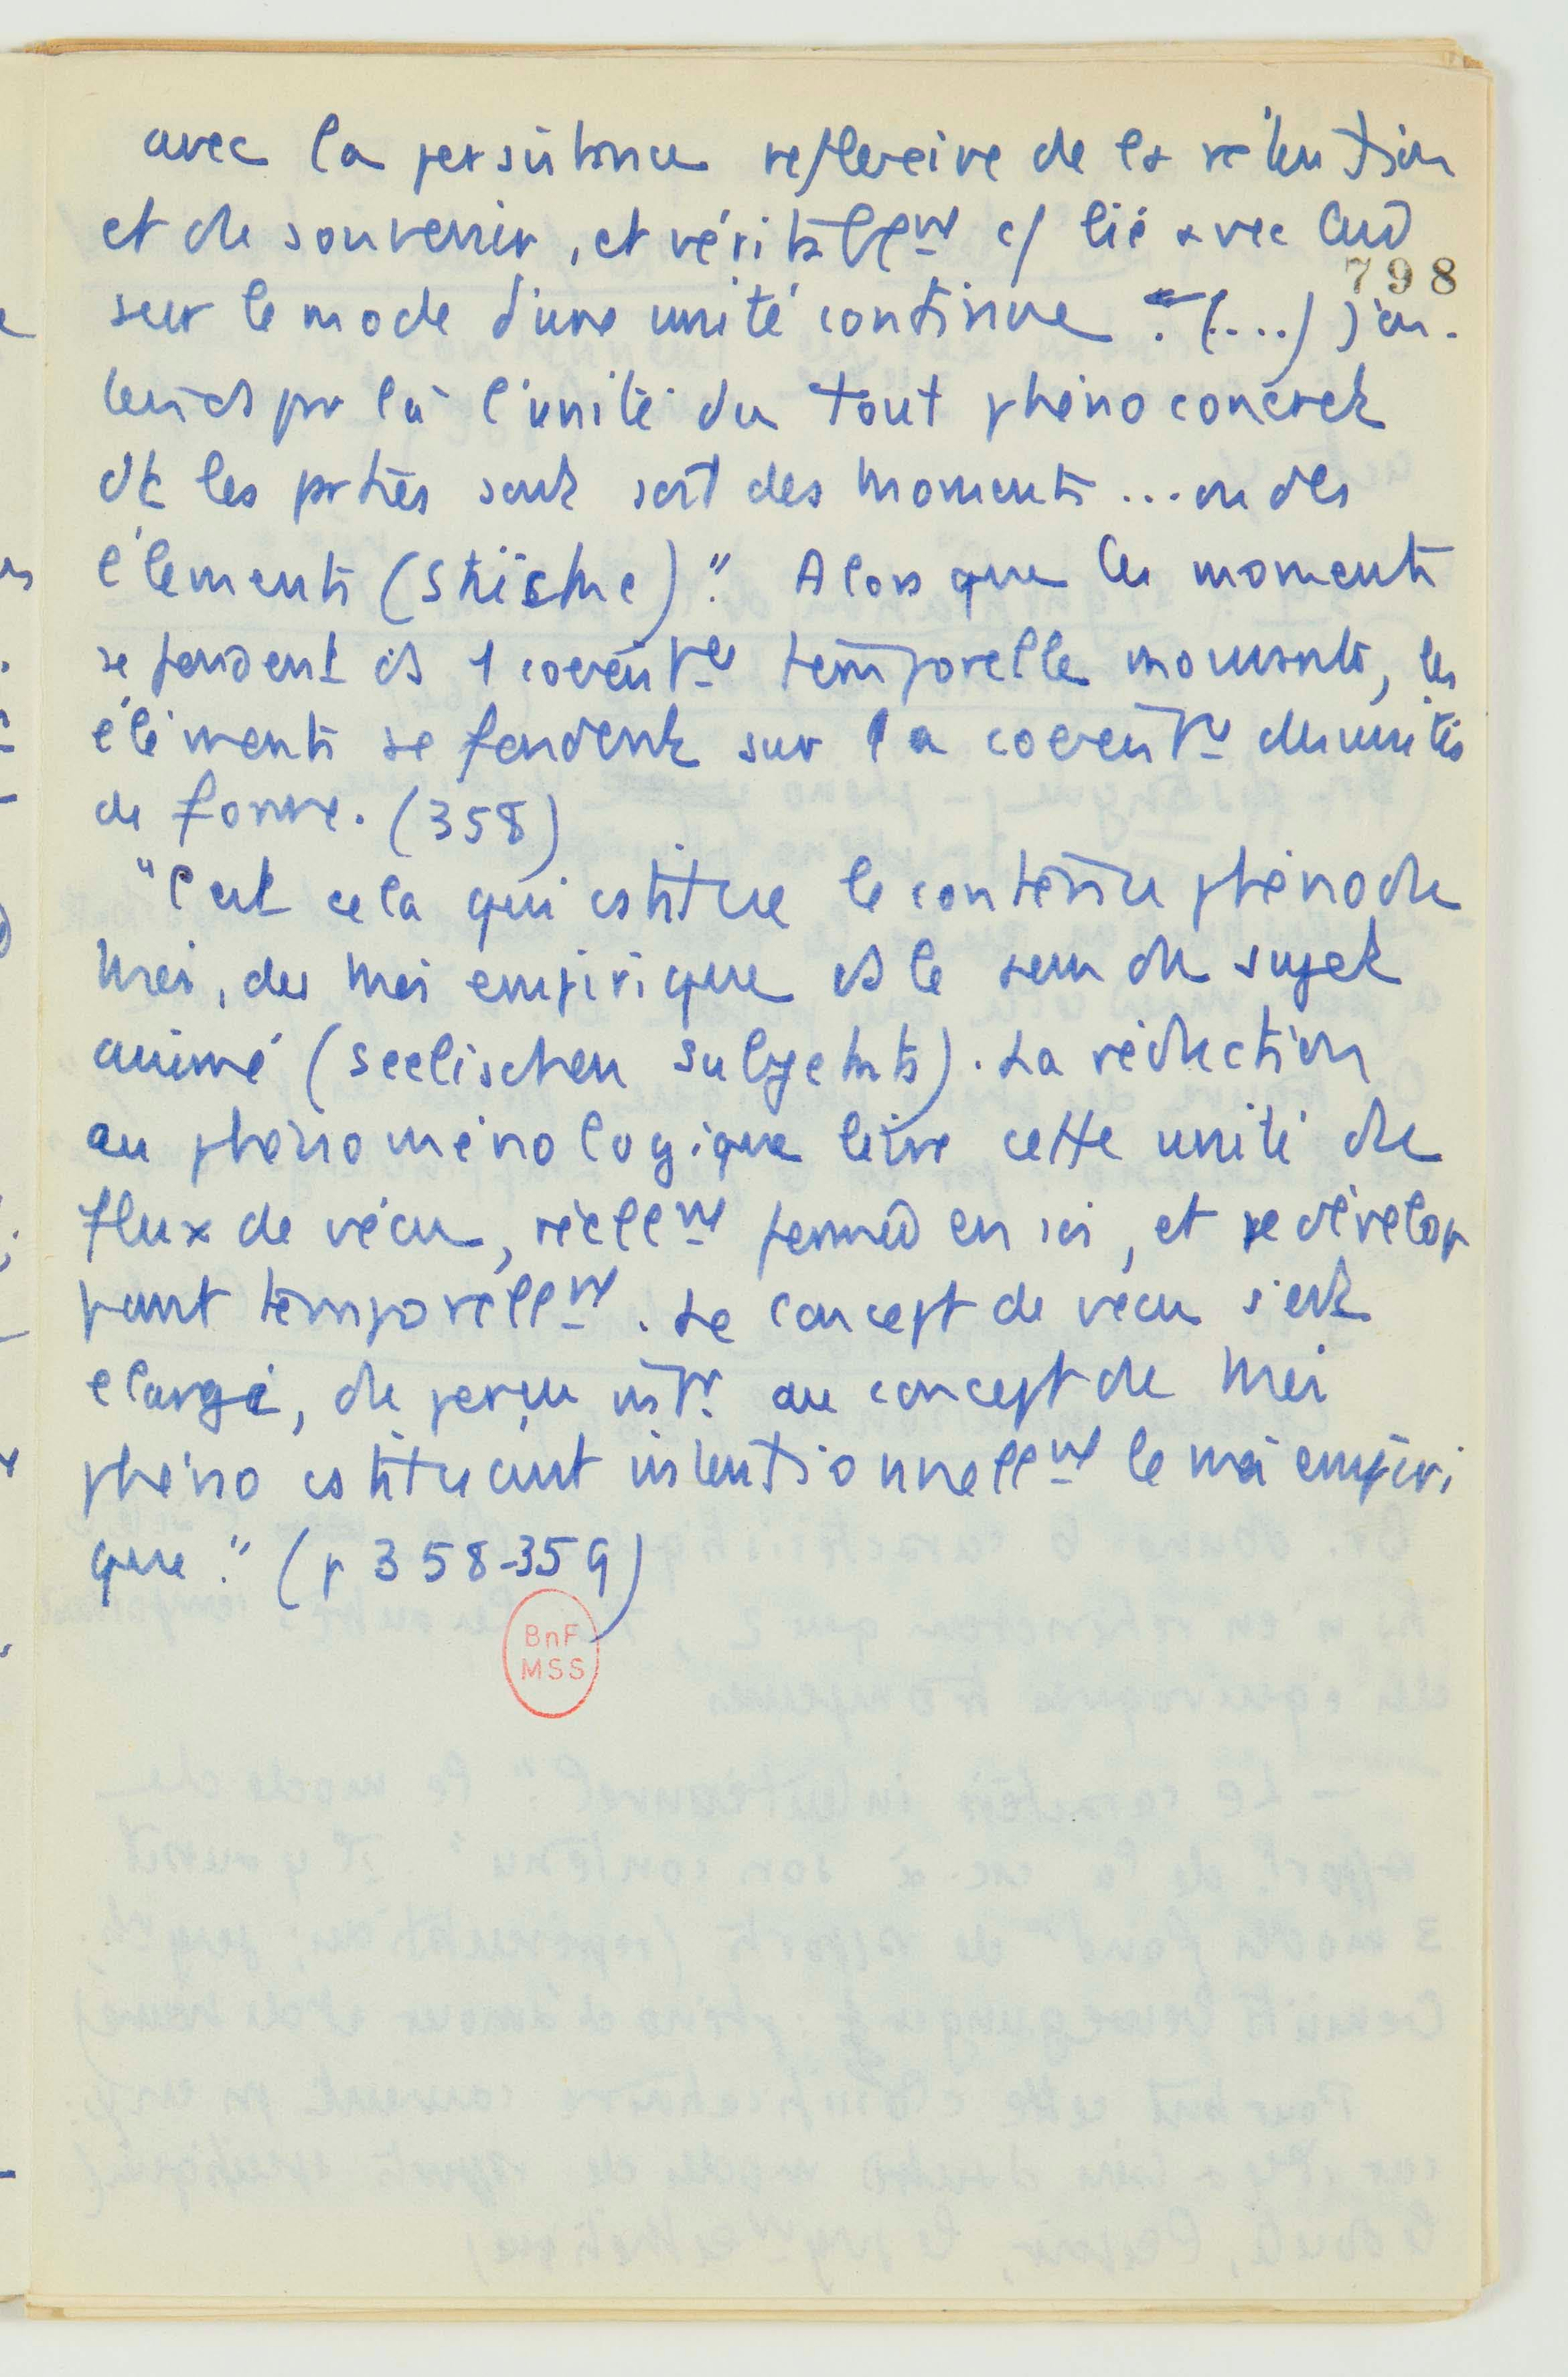 avec la persistance reflexive de la rétention
et du souvenir, et véritablemt c/ lié avec eux
798
sur le mode d'une unité continue. (....) j'en-
tends par là l'unité du tout phéno concret
dt les parties sont soit des moments ... ou des
éléments (Stücke)". Alors que les moments
se fondent ds 1 coexistence temporelle mouvante, les
éléments se fondent sur la coexistce des unités
de forme. (358)
"C'est cela qui cstitue le contenu phéno du
Moi, du Moi empirique ds le sens du sujet
animé (seelischen Subjekts). La réduction
au phénoménologique livre cette unité du
flux de vécu, réellemt fermé en soi, et se dévelop
pant temporellemt. Le concept de vécu s'est
elargi, du perçu int. au concept du Moi
phéno cstituant intentionnellemt le moi empiri
que." (p 358-359)
BnF
MSS